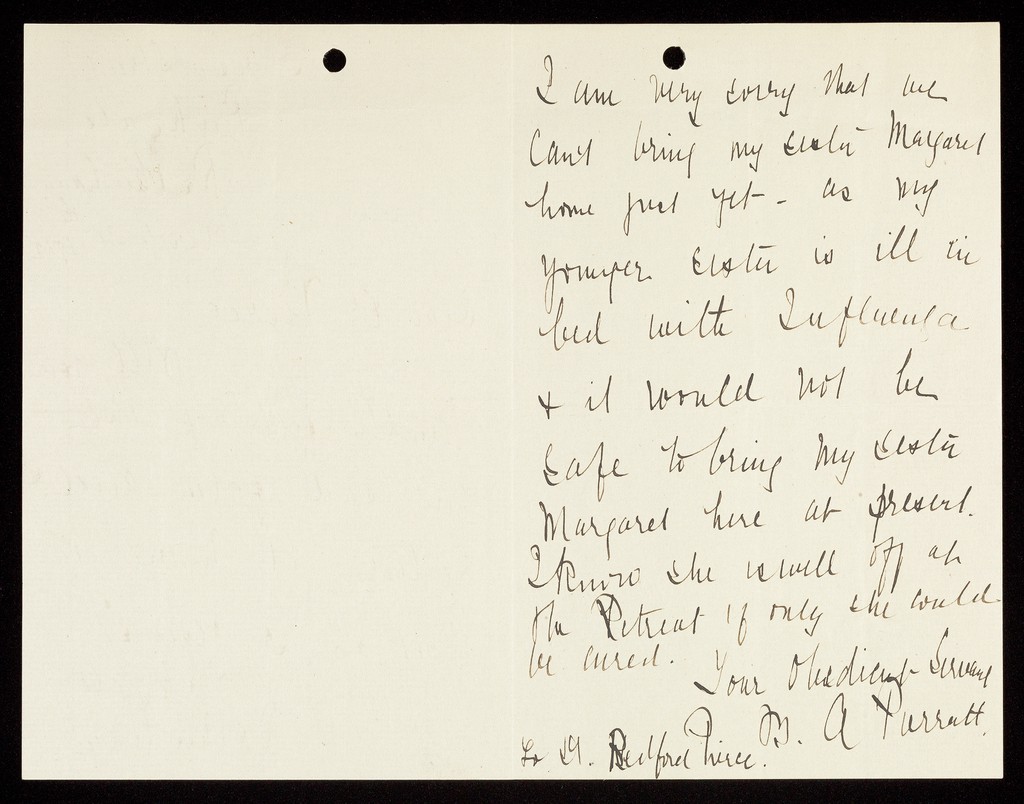 I am very sorry that we
can't bring my sister Margaret
home just yet - as my
younger sister is ill in
bed with Influenza
& it would not be
safe to bring my sister
Margaret here at present.
I know she is well off at
the Retreat if only she could
be cured.
Your Obedient Servant
B. A
To Dr. Bedford Pierce.